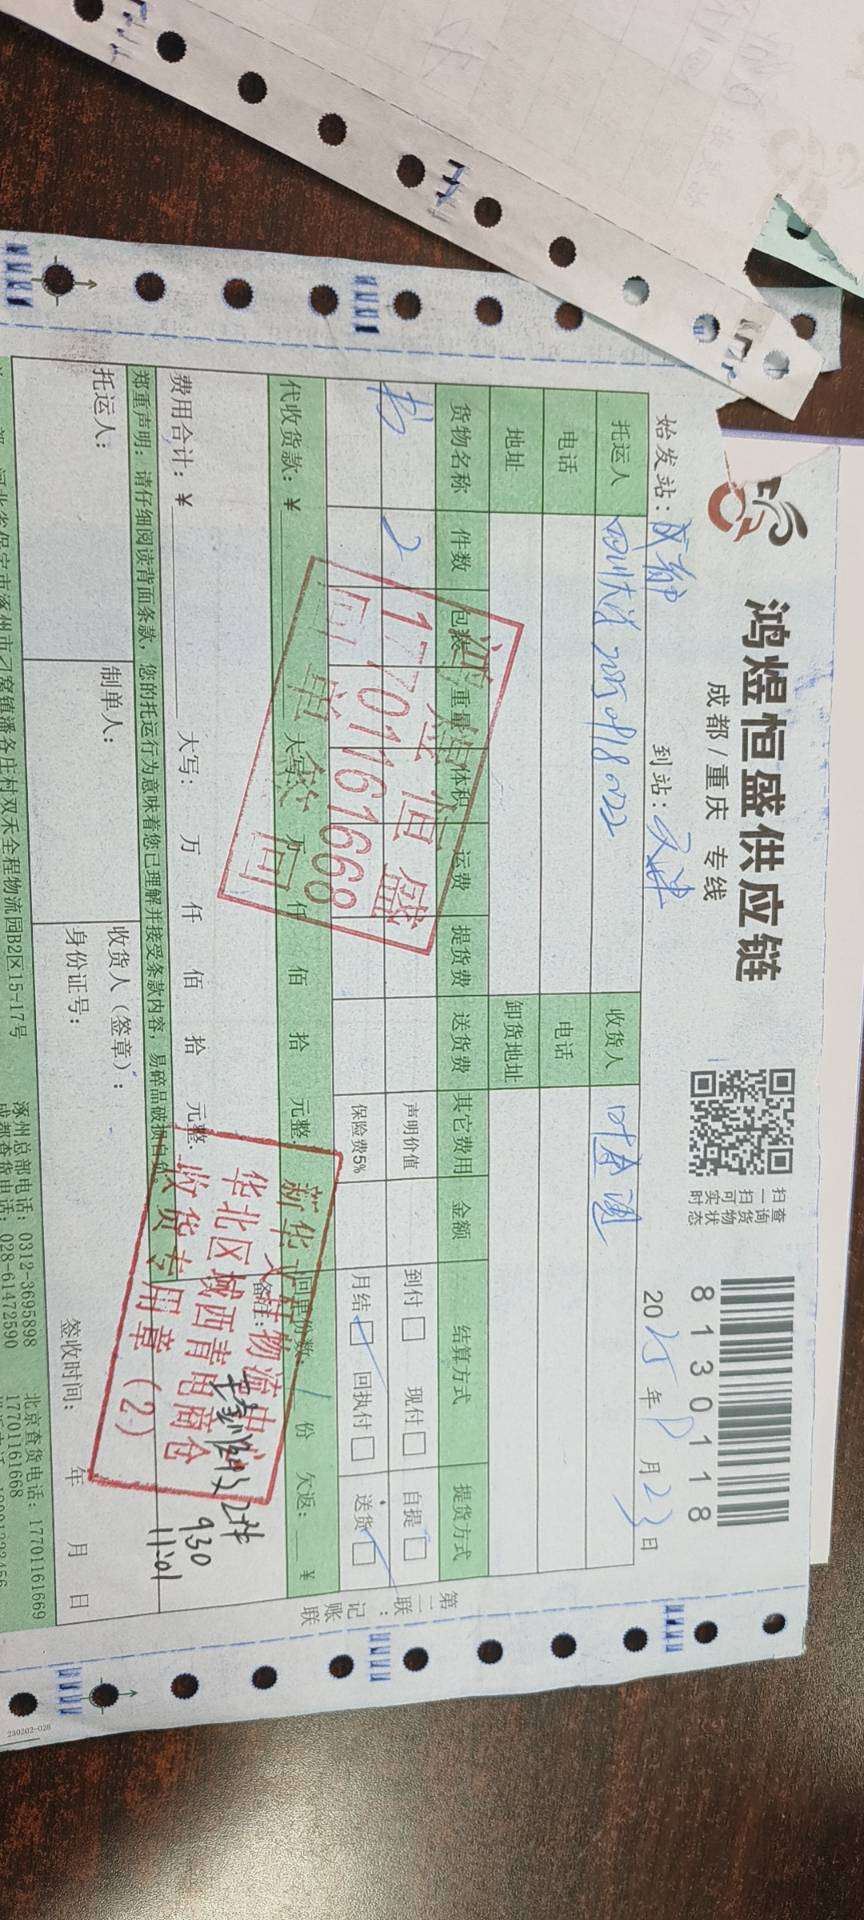 鸿煜恒盛供应链
成都/重庆 专线
扫一扫可实时
查询货物状态
8130118
始发站：成都 到站：天津 2025年9月23日
托运人 四川大学 20250918022 收货人 时春通
电话 电话
地址 卸货地址
货物名称 件数 包装 重量 体积 运费 提货费 送货费 其它费用 金额 结算方式 提货方式
书 2 声明价值 到付 现付 自提
保险费5% 月结 回执付 送货
代收货款：¥ 大写： 万 仟 佰 拾 元整. 回单份数：1 份 欠返： ¥
费用合计：¥ 大写： 万 仟 佰 拾 元整. 备注：
郑重声明：请仔细阅读背面条款，您的托运行为意味着您已理解并接受条款内容，易碎品破损自
托运人： 制单人： 收货人（签章）：
身份证号： 签收时间： 年 月 日
鸿煜恒盛
17701161668
回单签回
新华文轩物流中心
华北区域西青电商仓
收货专用章（2）
2件
9.30
11:01
第二联：记账联
河北省保定市涿州市刁窝镇潘各庄村双禾全程物流园B2区15-17号
涿州总部电话：0312-3695898 北京查货电话：17701161669
成都查货电话：028-61472590 17701161668
230202-028